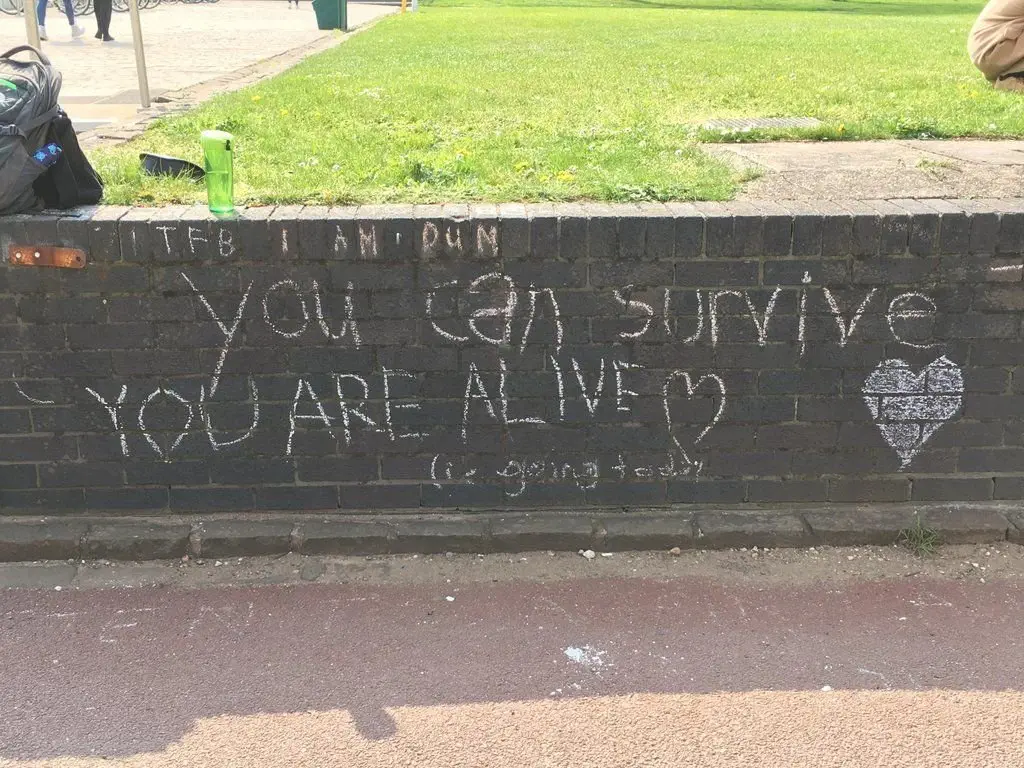 ITFB I AM DUN
you can survive
YOU ARE ALIVE
going today